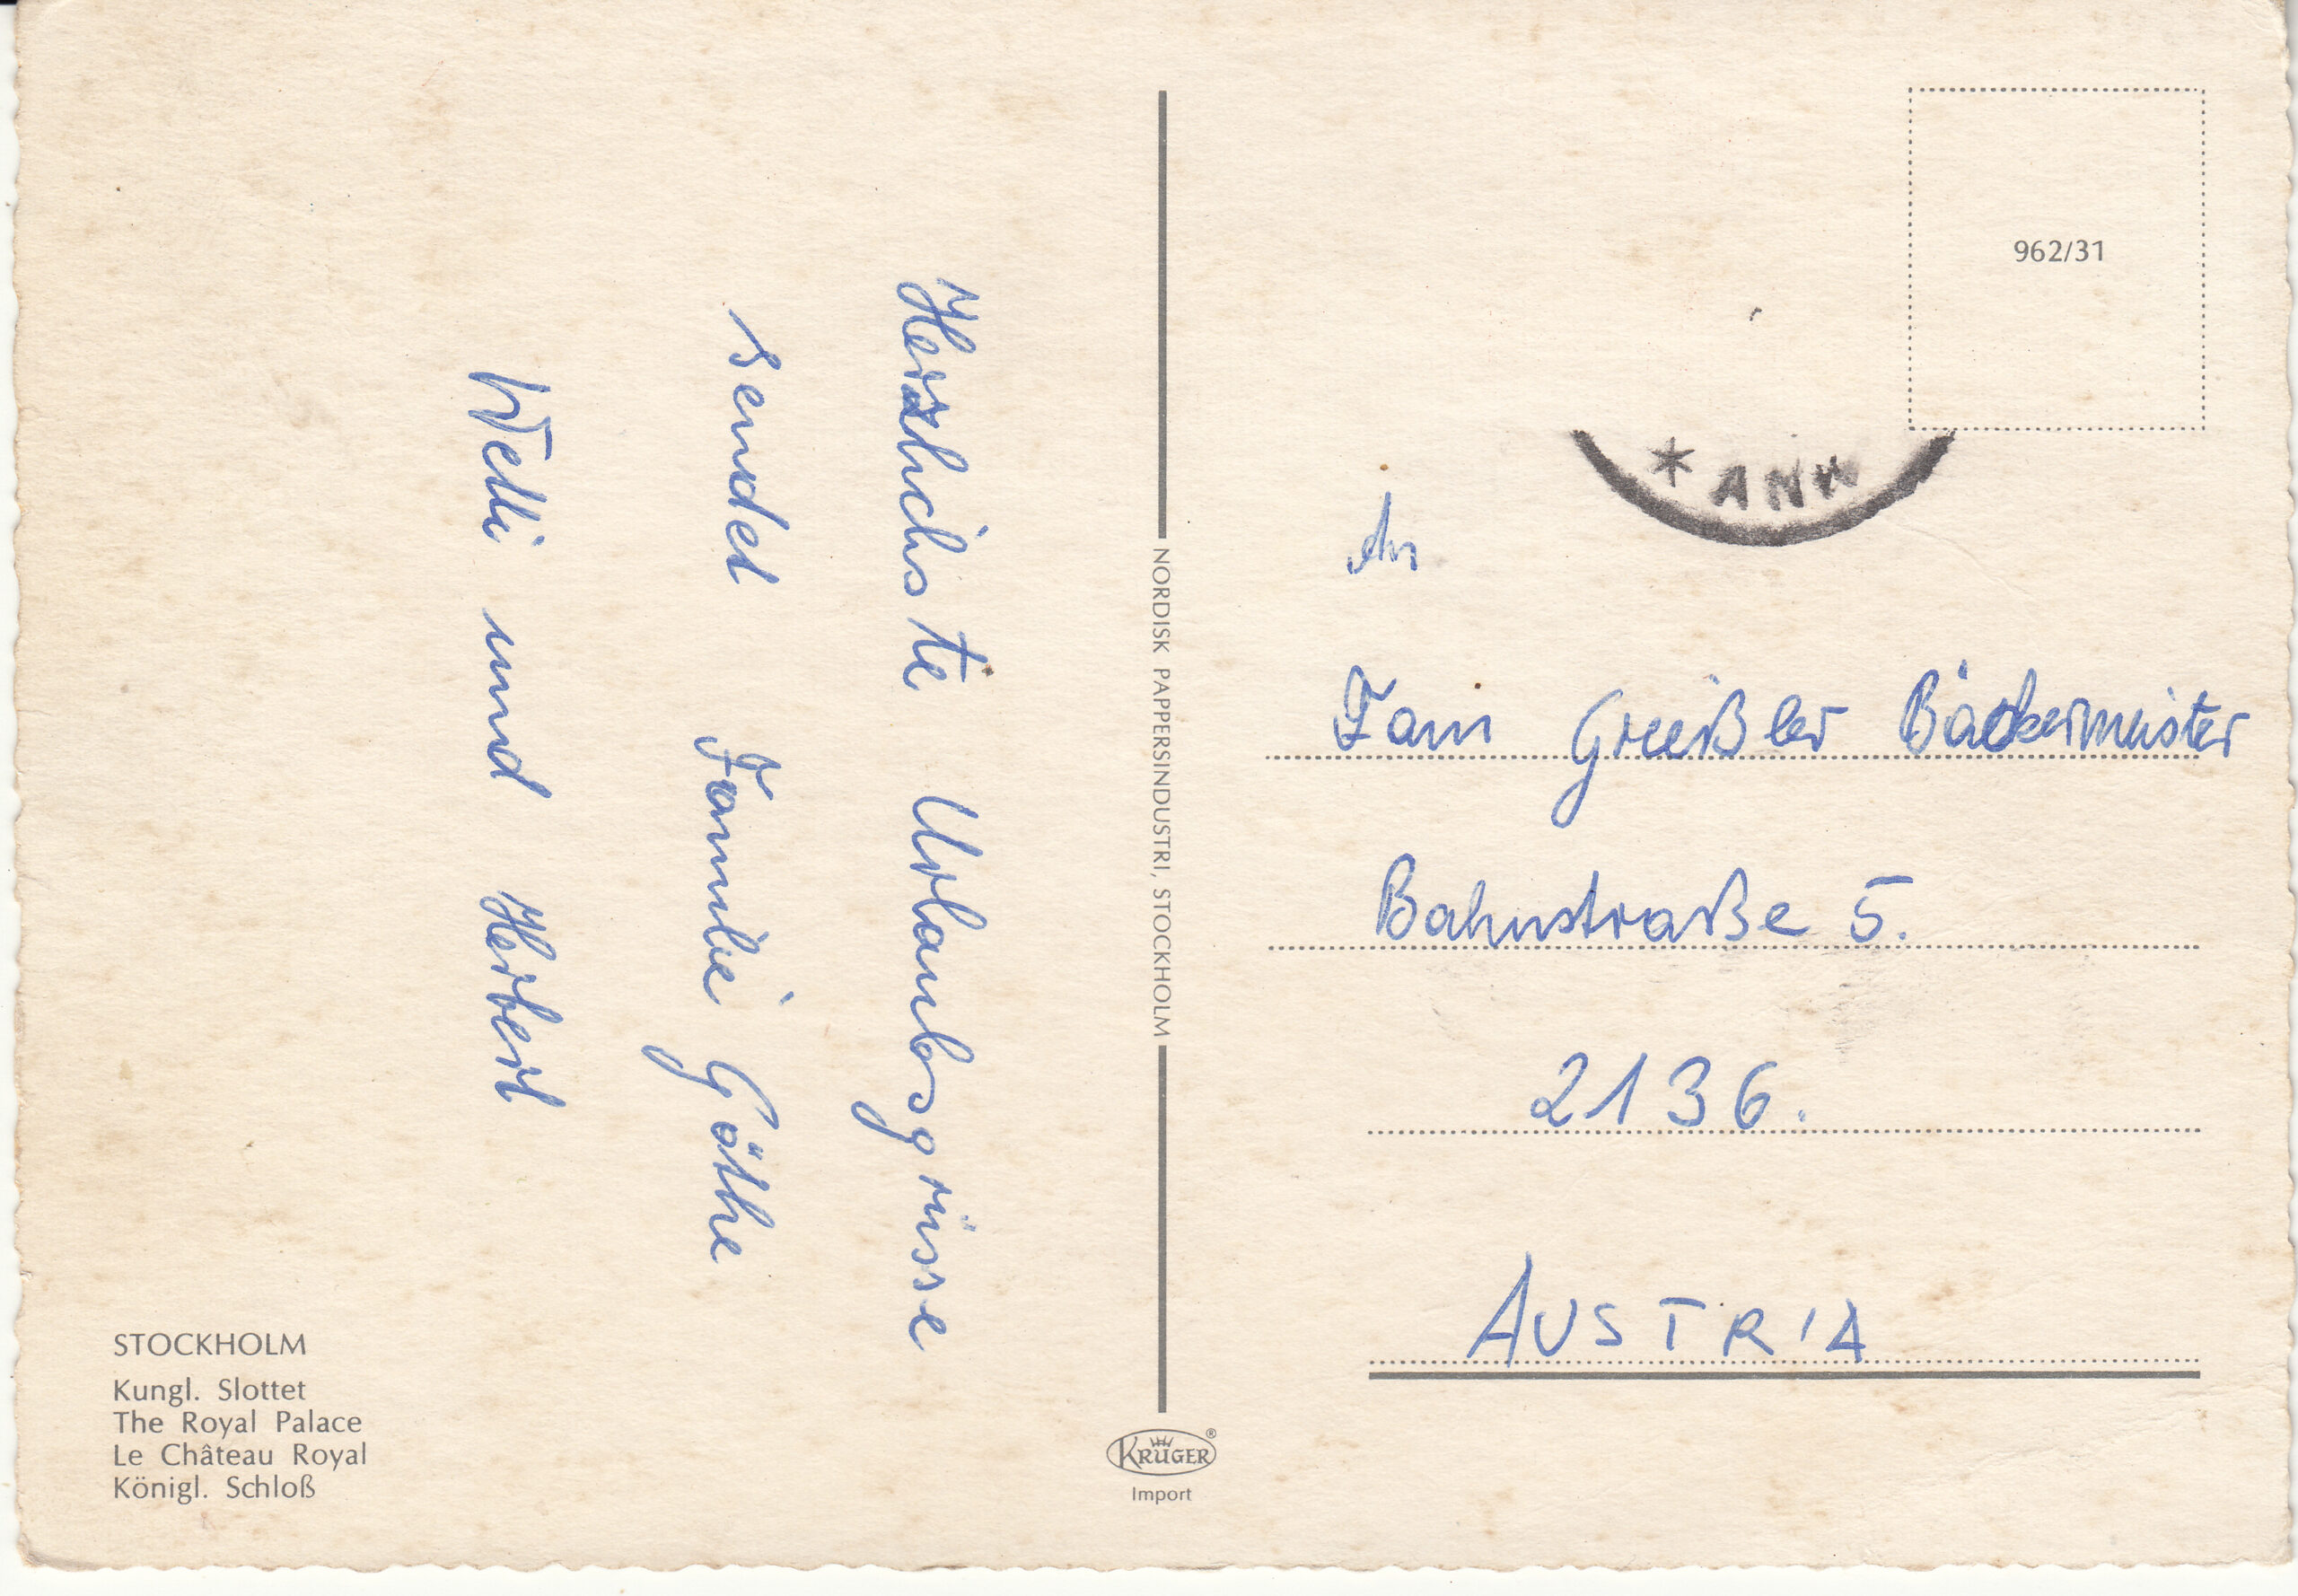 Herzlichste Urlaubsgrüsse
sendet Familie Göthe
Welli und Herbert
STOCKHOLM
Kungl. Slottet
The Royal Palace
Le Château Royal
Königl. Schloß
NORDISK PAPPERSINDUSTRI, STOCKHOLM
KRÜGER®
Import
962/31
* ANK
An
Fam Greißler Bäckermeister
Bahnstraße 5.
2136.
AUSTRIA